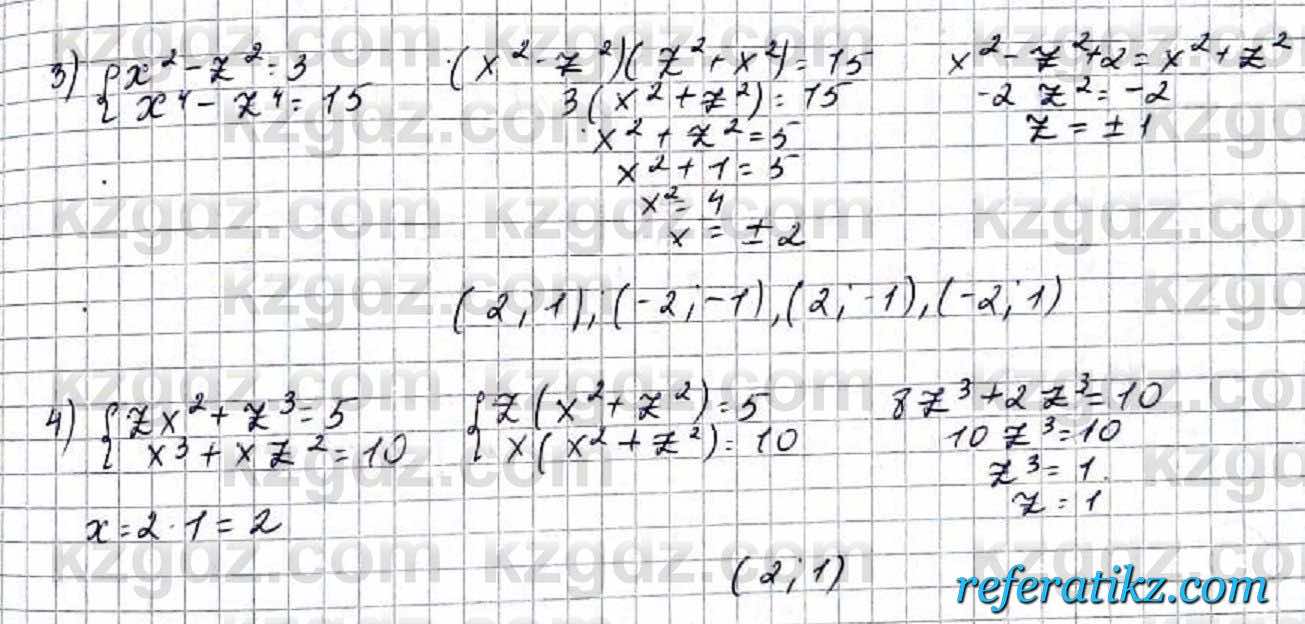 3) { x² - z² = 3
x⁴ - z⁴ = 15
(x² - z²)(z² + x²) = 15
3(x² + z²) = 15
x² + z² = 5
x² + 1 = 5
x² = 4
x = ± 2
x² - z² + 2 = x² + z²
-2 z² = -2
z = ± 1
(2; 1); (-2; -1), (2; -1), (-2; 1)
4) { zx² + z³ = 5
x³ + xz² = 10
{ z(x² + z²) = 5
x(x² + z²) = 10
8z³ + 2z³ = 10
10 z³ = 10
z³ = 1.
z = 1
x = 2 · 1 = 2
(2; 1)
kzgdz.com
referatikz.com